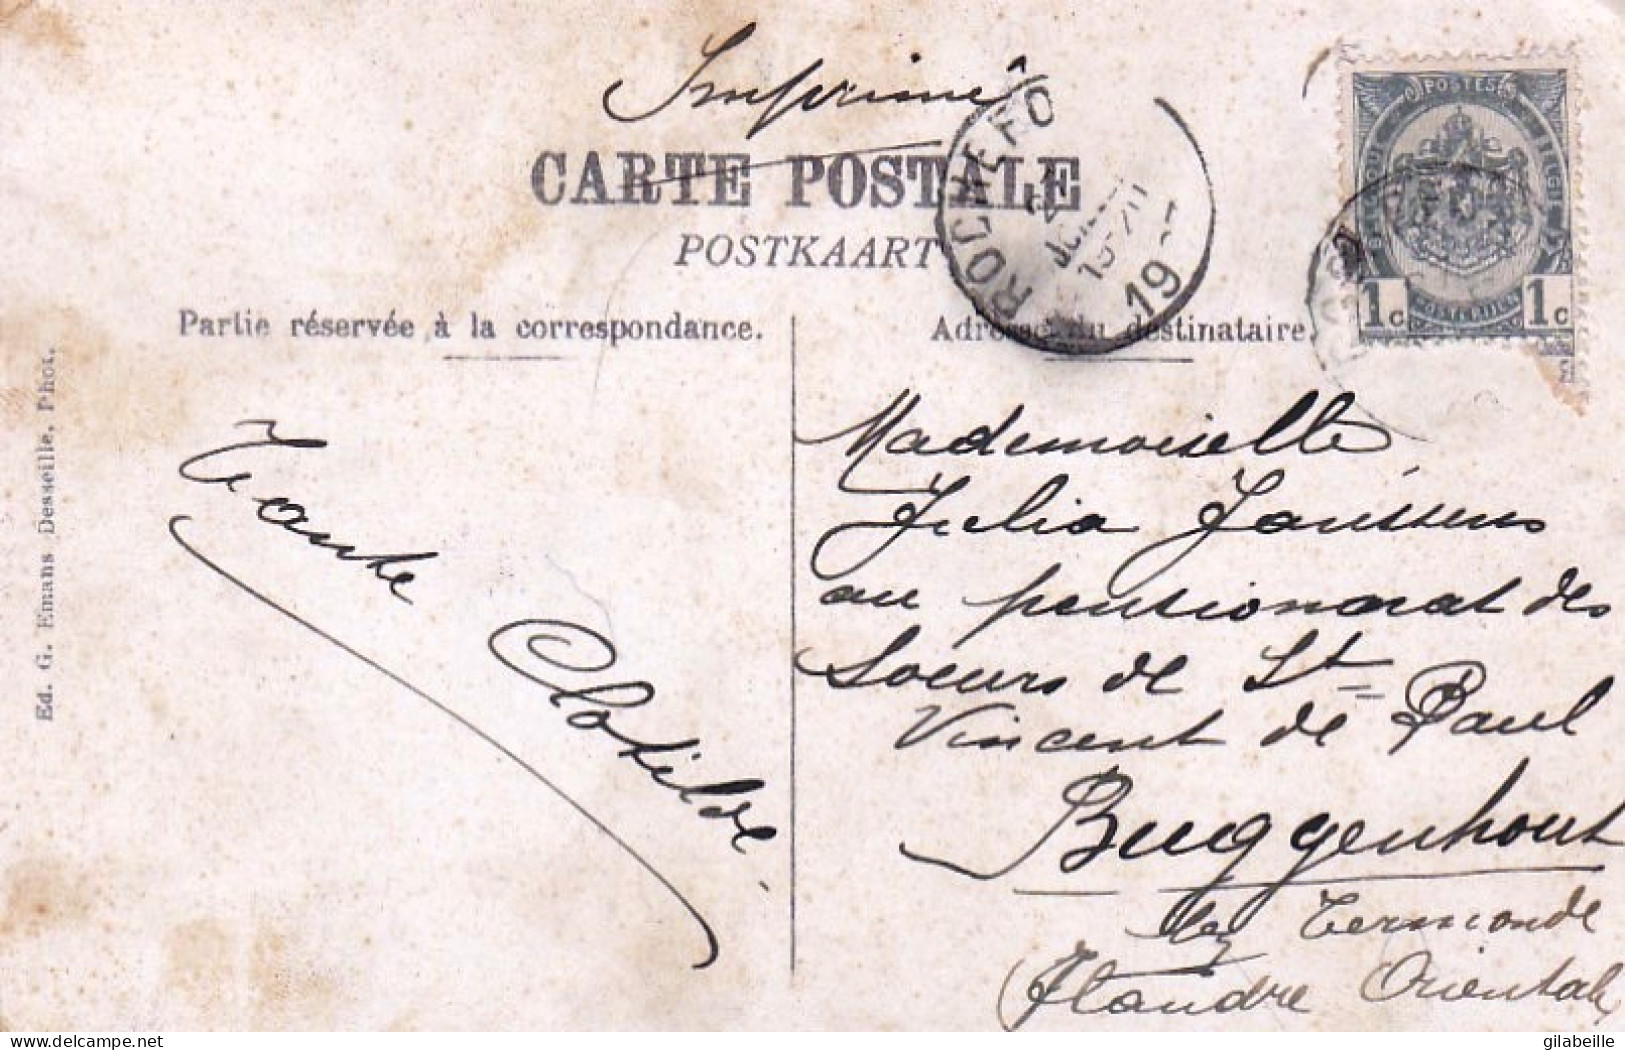 Imprimé
CARTE POSTALE
POSTKAART
Partie réservée à la correspondance.
Adresse du destinataire.
POSTES
BELGIQUE
BELGIE
1c
1c
ROCHEFO
19
Ed. G. Emans Desseille, Phot.
Tante
Clotilde
Mademoiselle
Julia Janssens
au pensionnat des
Soeurs de St
Vincent de Paul
Buggenhout
lez Termonde
(Flandre Orientale)
www.delcampe.net
gilabeille